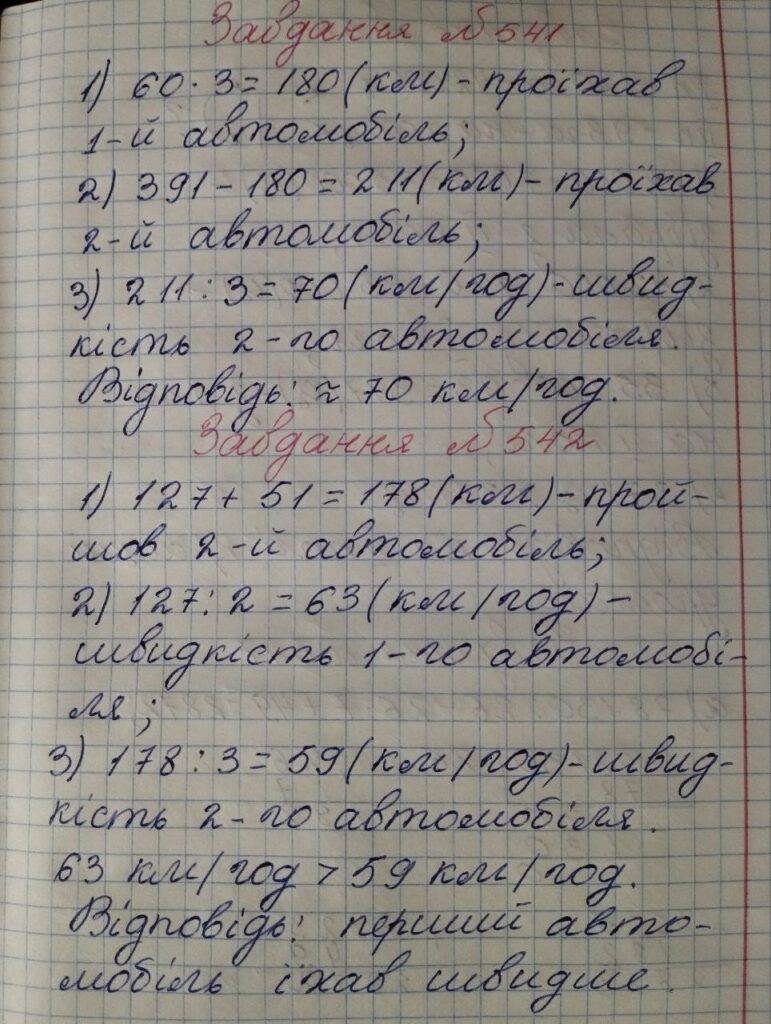 Завдання № 541
1) 60 · 3 = 180 (км) - проїхав
1-й автомобіль;
2) 391 - 180 = 211 (км) - проїхав
2-й автомобіль;
3) 211 : 3 = 70 (км/год) - швид-
кість 2-го автомобіля.
Відповідь: ≈ 70 км/год.
Завдання № 542
1) 127 + 51 = 178 (км) - прой-
шов 2-й автомобіль;
2) 127 : 2 = 63 (км/год) -
швидкість 1-го автомобі-
ля;
3) 178 : 3 = 59 (км/год) - швид-
кість 2-го автомобіля.
63 км/год > 59 км/год.
Відповідь: перший авто-
мобіль їхав швидше.